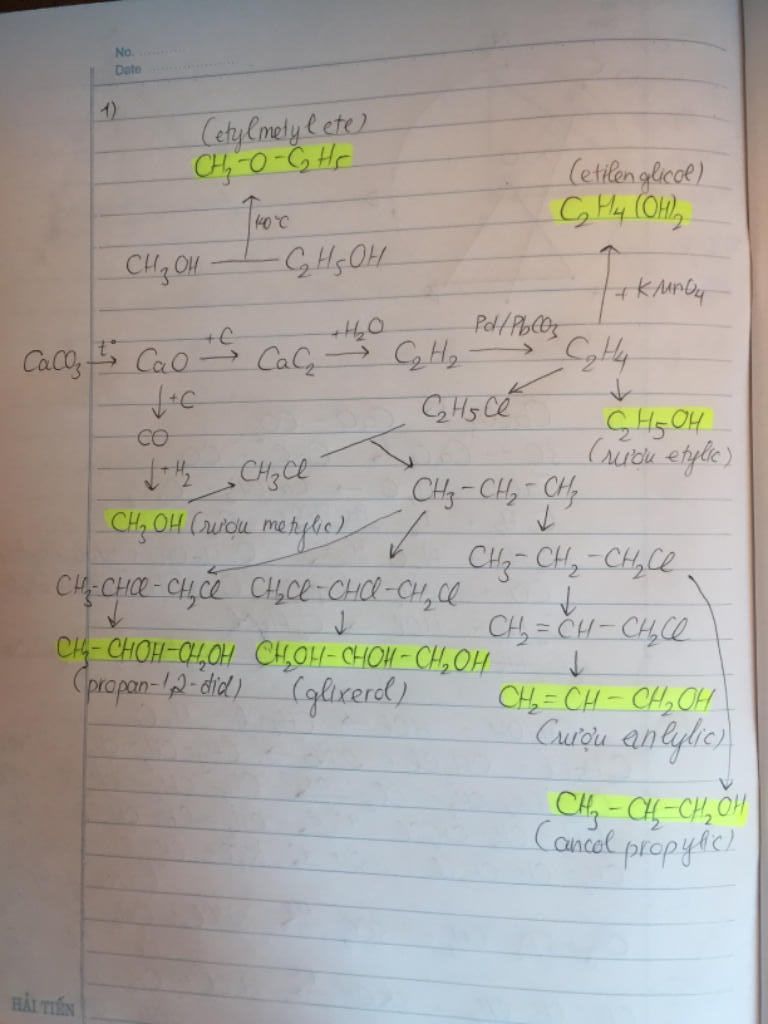 No. ............
Date ......................
1)
(etylmetyl ete)
CH₃-O-C₂H₅
(etilenglicol)
C₂H₄(OH)₂
140°C
CH₃OH — C₂H₅OH
+ KMnO₄
CaCO₃ t° → CaO +C → CaC₂ +H₂O → C₂H₂ Pd/PbCO₃ → C₂H₄
↓+C
C₂H₅Cl
C₂H₅OH
(rượu etylic)
CO
↓+H₂
CH₃Cl
CH₃-CH₂-CH₃
CH₃OH (rượu metylic)
CH₃-CH₂-CH₂Cl
CH₃-CHCl-CH₂Cl CH₂Cl-CHCl-CH₂Cl
CH₂=CH-CH₂Cl
CH₃-CHOH-CH₂OH CH₂OH-CHOH-CH₂OH
(propan-1,2-diol) (glixerol)
CH₂=CH-CH₂OH
(rượu anlylic)
CH₃-CH₂-CH₂OH
(ancol propylic)
HẢI TIẾN